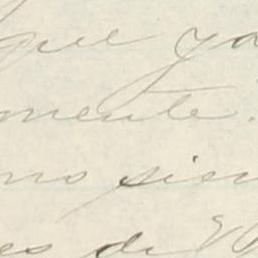 que ya
mente.
mo sien
es de